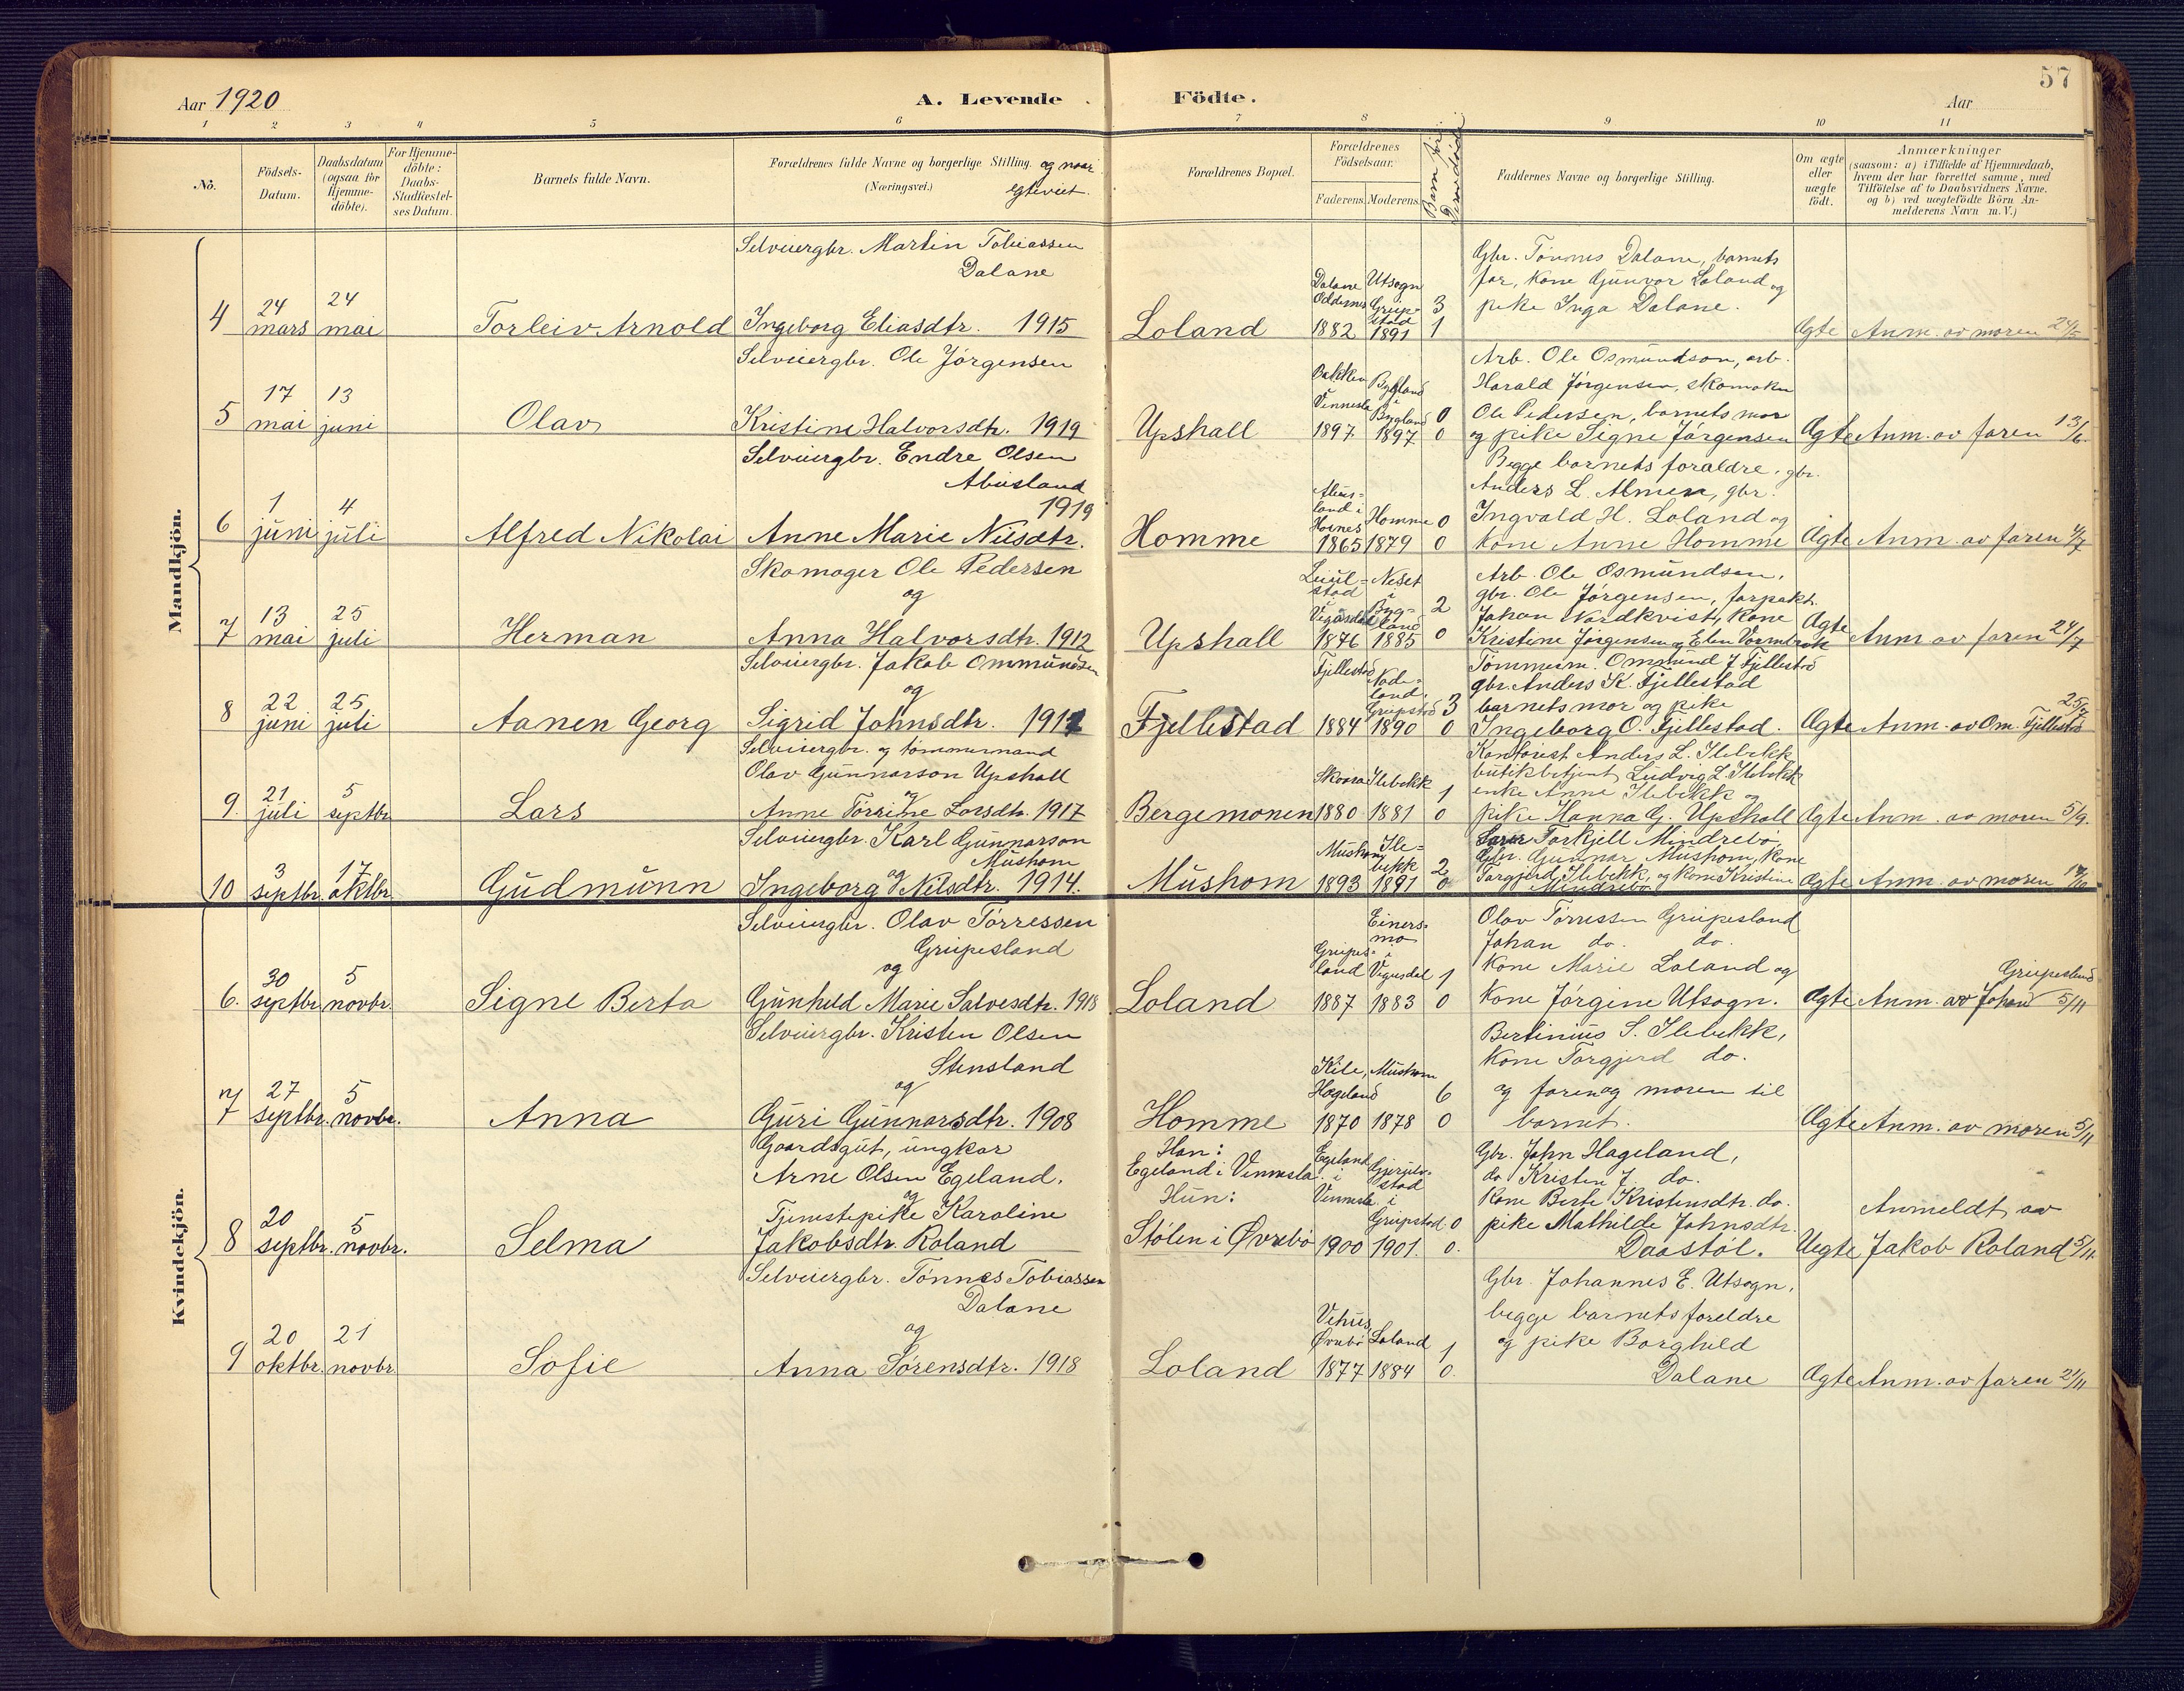 57
Aar 1920
A. Levende Födte.
Aar
1 2 3 4 5 6 7 8 9 10 11
No.
Födsels-
Datum.
Daabsdatum
(ogsaa for
Hjemme-
döbte).
For Hjemme-
döbte:
Daabs-
Stadfæstel-
ses Datum.
Barnets fulde Navn.
Forældrenes fulde Navne og borgerlige Stilling. og naar
(Næringsvei.) egteviet.
Forældrenes Bopæl.
Forældrenes
Födselsaar.
Faderens Moderens
Barn før
Faddernes Navne og borgerlige Stilling.
Om ægte
eller
uægte
födt.
Anmærkninger
(saasom: a) i Tilfælde af Hjemmedaab,
hvem der har forrettet samme, med
Tilföielse af to Daabsvidners Navne,
og b) ved uægtefödte Börn An-
melderens Navn m. V.)
Mandkjön.
4
24
mars
24
mai
Torleiv Arnold
Selveiergbr. Martin Tobiassen
Dalane
Ingeborg Eliasdtr. 1915
Loland
Dalane
Oddernes
1882
Utsogn
Greip-
stad
1891
3
1
Gbr. Tønnes Dalane, barnets
far, kone Gunvor Loland og
pike Inga Dalane.
Ægte
Anm. av moren 24/5
5
17
mai
13
juni
Olav
Selveiergbr. Ole Jørgensen
Kristine Halvorsdtr. 1919
Upshall
Bakken
Vennesla
1897
Bygland
i
Bygland
1897
0
0
Arb. Ole Osmundson, arb.
Harald Jørgensen, skomaker
Ole Pedersen, barnets mor
og pike Signe Jørgensen
Ægte
Anm. av faren 13/6
6
1
juni
4
juli
Alfred Nikolai
Selveiergbr. Endre Olsen
Abusland
1919
Anne Marie Nilsdtr.
Homme
Abus-
land i
Hornes
1865
Homme
1879
0
0
Begge barnets foraldre, gbr.
Anders L. Almen, gbr.
Ingvald H. Loland og
kone Anne Homme
Ægte
Anm. av faren 4/7
7
13
mai
25
juli
Herman
Skomager Ole Pedersen
og
Anna Halvorsdtr. 1912
Upshall
stad
i
Vegusdal
1876
Neset
i
Byg-
land
1885
2
0
Arb. Ole Osmundsen,
gbr. Ole Jørgensen, forpakt.
Johan Nordkvist, kone
Kristine Jørgensen og Elen
Ægte
Anm. av faren 24/7
8
22
juni
25
juli
Aanen Georg
Selveiergbr. Jakob Ommundsen
og
Sigrid Johnsdtr. 1911
Fjellestad
Fjellestad
1884
Node-
land,
Greipstad
1890
3
0
Tømmerm. Ommund J. Fjellestad
gbr. Anders K. Fjellestad
barnets mor og pike
Ingeborg O. Fjellestad.
Ægte
Anm. av Om. Fjellestad
25/7
9.
21
juli
5
septbr
Lars
Selveiergbr. og tømmermand
Olav Gunnarson Upshall
og
Anne Torine Larsdtr. 1917
Bergemonen
1880
Ilebekk
1881
1
0
Kontorist Anders L. Ilebekk
butikbetjent Ludvig L. Ilebekk
enke Anne Ilebekk og
pike Hanna G. Upshall
Ægte
Anm. av moren 5/9.
10
3
septbr.
17
oktbr.
Gudmunn
Selveiergbr. Karl Gunnarson
Mushom
og
Ingeborg Nilsdtr. 1914.
Mushom
Mushom
1893
Ile-
bekk
1891
2
0
Torkjell Mindrebø
Gbr. Gunnar Mushom, kone
Torgjerd Ilebekk, og kone Kristine
Mindrebø
Ægte
Anm. av moren 17/10
Kvindekjön.
6.
30
septbr.
5
novbr.
Signe Berta
Selveiergbr. Olav Tørressen
Greipesland
og
Gunhild Marie Salvesdtr. 1918
Loland
Greipes-
land
1887
Einers-
mo
i
Vegusdal
1883
1
0
Olav Tørressen Greipesland
Johan do. do.
Kone Marie Loland og
kone Jørgine Utsogn.
Ægte
Greipesland
Anm. av Johan 5/11
7
27
septbr.
5
novbr.
Anna
Selveiergbr. Kristen Olsen
Stensland
og
Guri Gunnarsdtr. 1908
Homme
Kile,
Hægeland
1870
Mushom
1878
6
0
Bertinius S. Ilebekk,
kone Torgjerd do.
og faren og moren til
barnet.
Ægte
Anm. av moren 5/11
8
20
septbr.
5
novbr.
Selma
Gaardsgut, ungkar
Arne Olsen Egeland,
og
Tjenestepike Karoline
Jakobsdtr. Roland
Han:
Egeland i Vennesla.
Hun:
Stølen i Øvrebø
Egeland
i
Vennesla
1900
stad
i
Greipstad
1901.
0
0.
Gbr. John Hageland,
do Kristen J. do.
Kone Berte Kristensdtr. do.
pike Mathilde Johnsdtr.
Daastøl.
Uegte
Anmeldt av
Jakob Roland 5/11.
9
20
oktbr.
21
novbr
Sofie
Selveiergbr. Tønnes Tobiassen
Dalane
og
Anna Sørensdtr. 1918
Loland
Vehus,
Øvrebø
1877
Loland
1884
1
0.
Gbr. Johannes E. Utsogn,
begge barnets foreldre
og pike Borghild
Dalane
Ægte
Anm. av faren 21/11